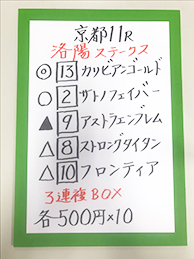 京都11R
洛陽ステークス
◎ 13 カリビアンゴールド
○ 2 サトノフェイバー
▲ 9 アストラエンブレム
△ 8 ストロングタイタン
△ 10 フロンティア
3連複BOX
各500円×10